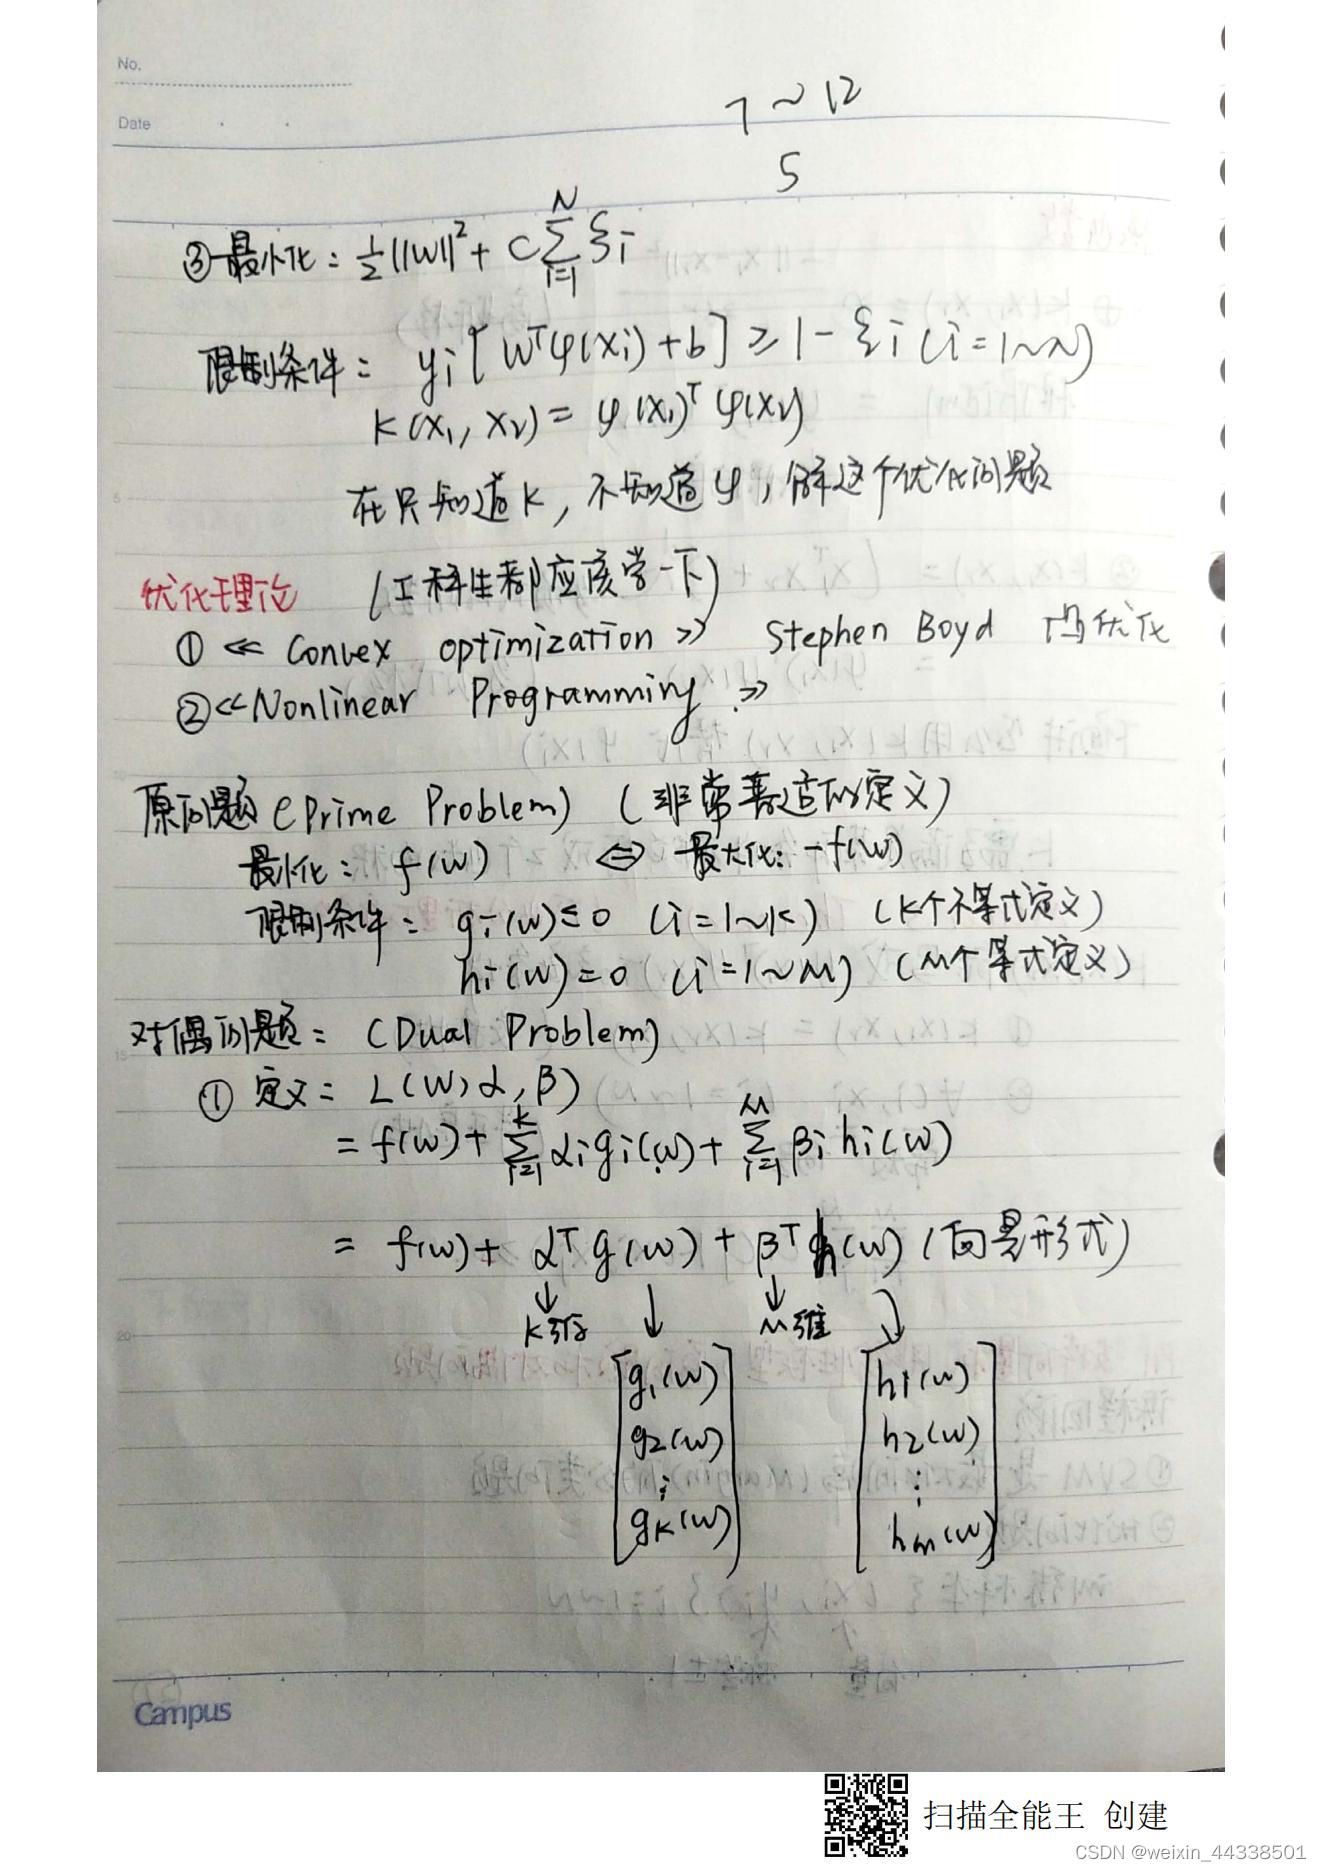 No.
Date
7~12
5
③最小化: ½||W||² + C∑_{i=1}^{N} ξi
限制条件: yi[WᵀΨ(Xi)+b] ≥ 1-ξi (i=1~N)
K(X₁, X₂) = Ψ(X₁)ᵀ Ψ(X₂)
在只知道K, 不知道Ψ, 解这个优化问题
优化理论 (工科生都应该学一下)
① 《Convex optimization》 Stephen Boyd 凸优化
② 《Nonlinear Programming》
原问题 (Prime Problem) (非常普适的定义)
最小化: f(w) ⇔ 最大化: -f(w)
限制条件: gi(w)≤0 (i=1~K) (K个不等式定义)
hi(w)=0 (i=1~M) (M个等式定义)
对偶问题: (Dual Problem)
① 定义: L(W, α, β)
= f(w) + ∑_{i=1}^{K} αi gi(w) + ∑_{i=1}^{M} βi hi(w)
= f(w) + αᵀ g(w) + βᵀ h(w) (向量形式)
↓ ↓ ↓
K维 M维
g₁(w) h1(w)
g₂(w) h2(w)
⋮ ⋮
gK(w) hm(w)
Campus
扫描全能王 创建
CSDN @weixin_44338501